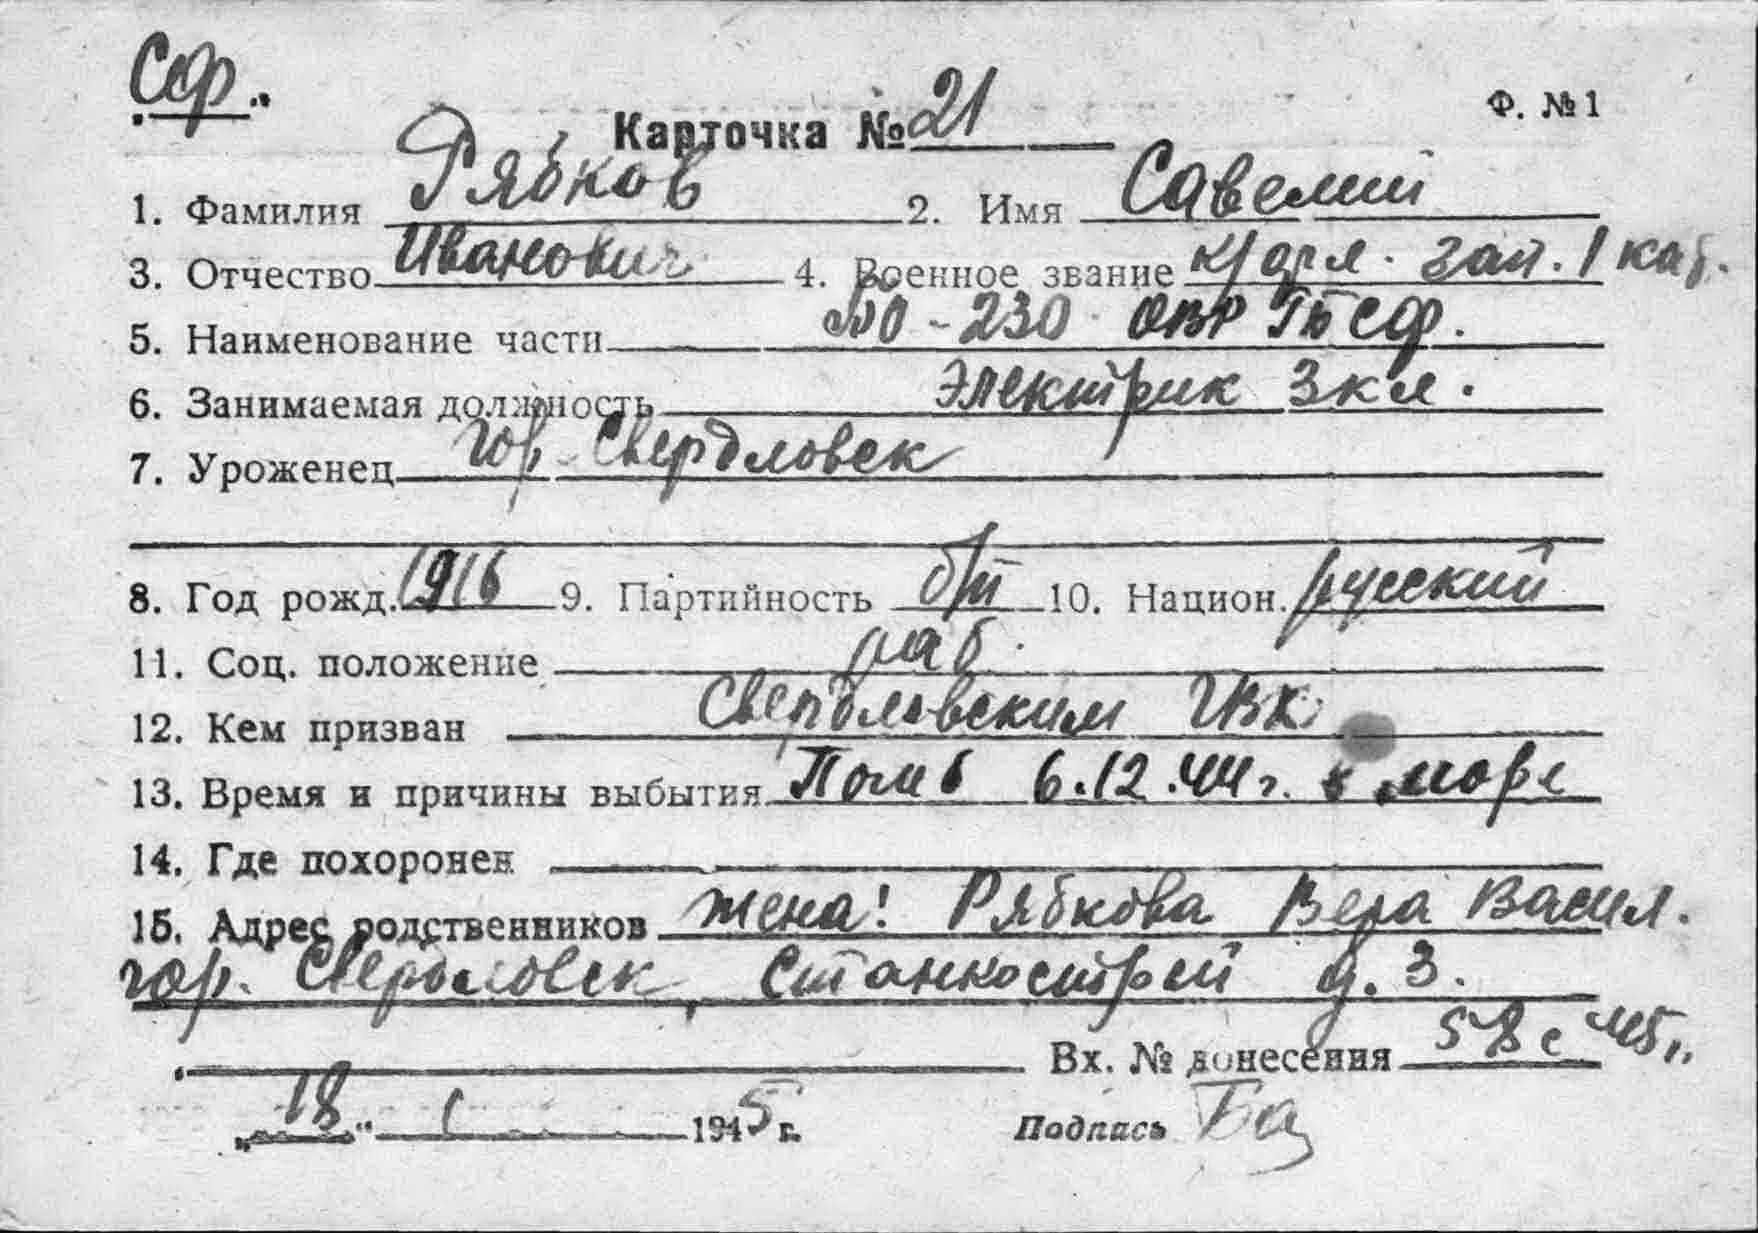 Сф.
Ф. № 1
Карточка № 21
1. Фамилия Рябков 2. Имя Савелий
3. Отчество Иванович 4. Военное звание к/фл. зап. 1 кат.
5. Наименование части МО-230 ОВР ГБ СФ.
6. Занимаемая должность электрик 3 кл.
7. Уроженец гор. Свердловск
8. Год рожд. 1916 9. Партийность б/п 10. Национ. русский
11. Соц. положение раб.
12. Кем призван Свердловским ГВК
13. Время и причины выбытия Погиб 6.12.44 г. в море
14. Где похоронен
15. Адрес родственников жена: Рябкова Вера Васил.
гор. Свердловск, Станкострой д. 3.
Вх. № донесения 45 г.
"18" 1 1945 г. Подпись Ба